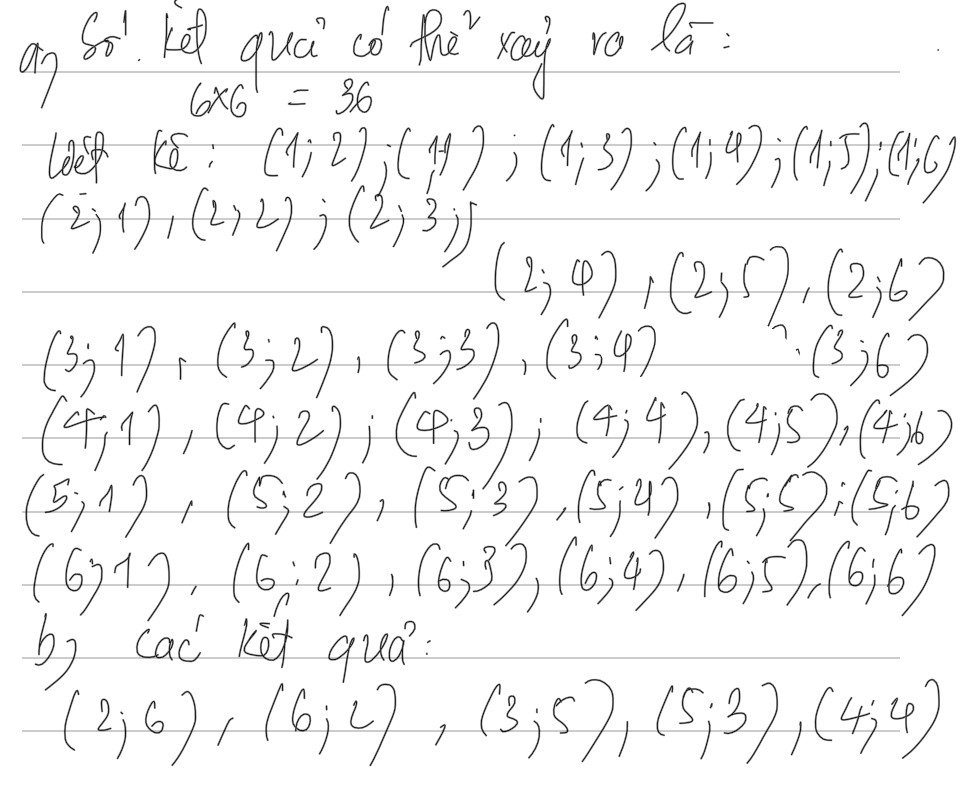 a, Số kết quả có thể xảy ra là:
6x6 = 36
Liệt kê: (1; 2); (1; 1); (1; 3); (1; 4); (1; 5); (1; 6)
(2; 1), (2; 2); (2; 3);
(2; 4), (2; 5), (2; 6)
(3; 1), (3; 2), (3; 3), (3; 4) , (3; 6)
(4; 1), (4; 2); (4; 3); (4; 4), (4; 5), (4; 6)
(5; 1), (5; 2), (5; 3), (5; 4), (5; 5); (5; 6)
(6; 1), (6; 2), (6; 3), (6; 4), (6; 5), (6; 6)
b, Các kết quả:
(2; 6), (6; 2), (3; 5), (5; 3), (4; 4)